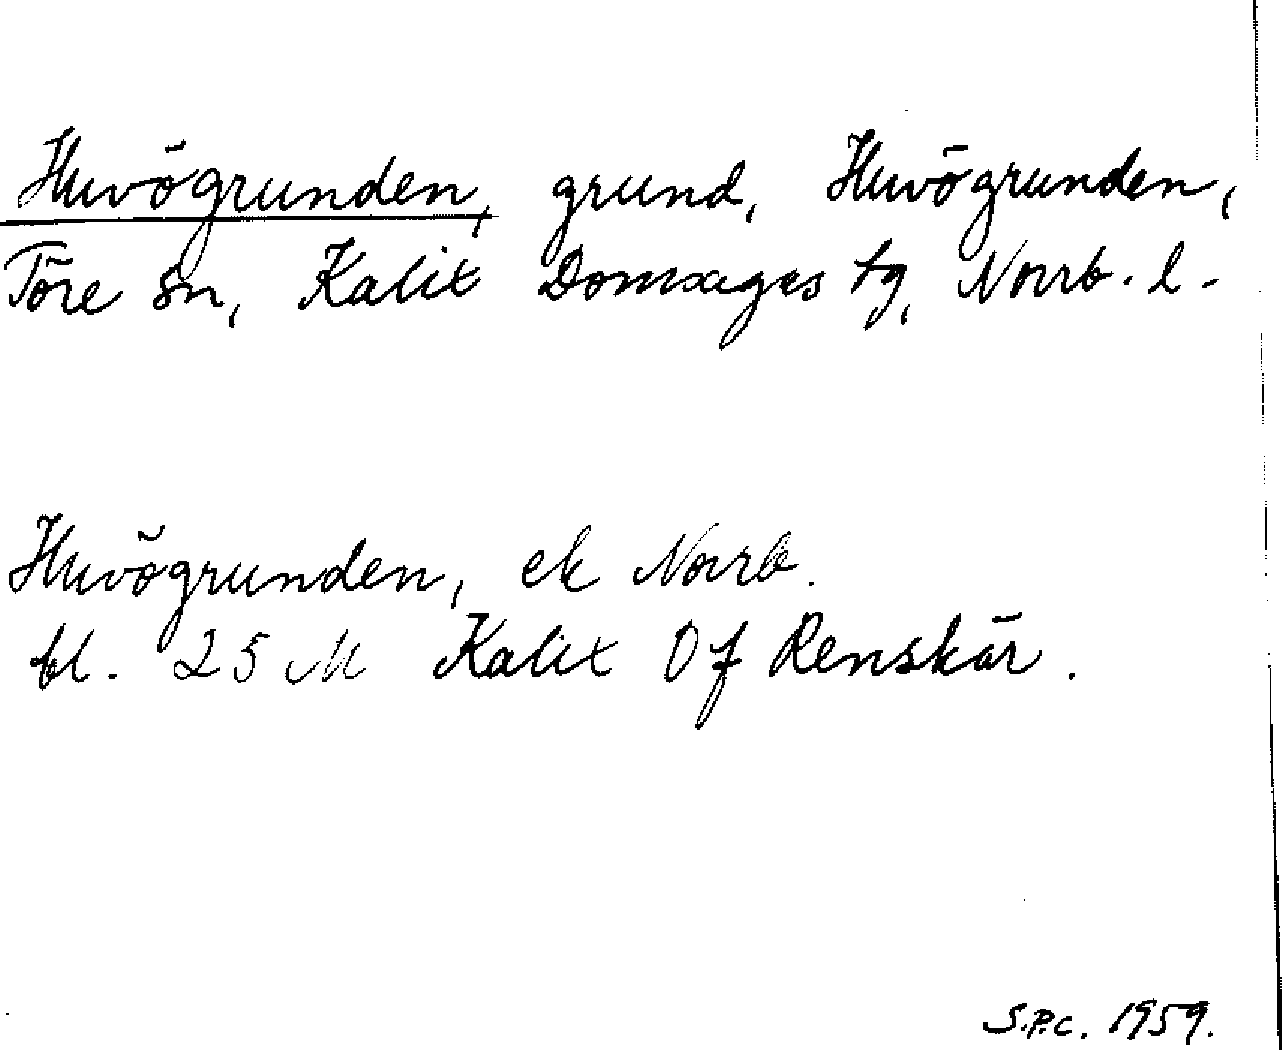 Huvögrunden, grund, Huvögrunden,
Töre sn, Kalix Domsagas tg, Norrb. l.
Huvögrunden, ek Norrb.
bl. 25 M Kalix Of Renskär.
S.P.C. 1959.